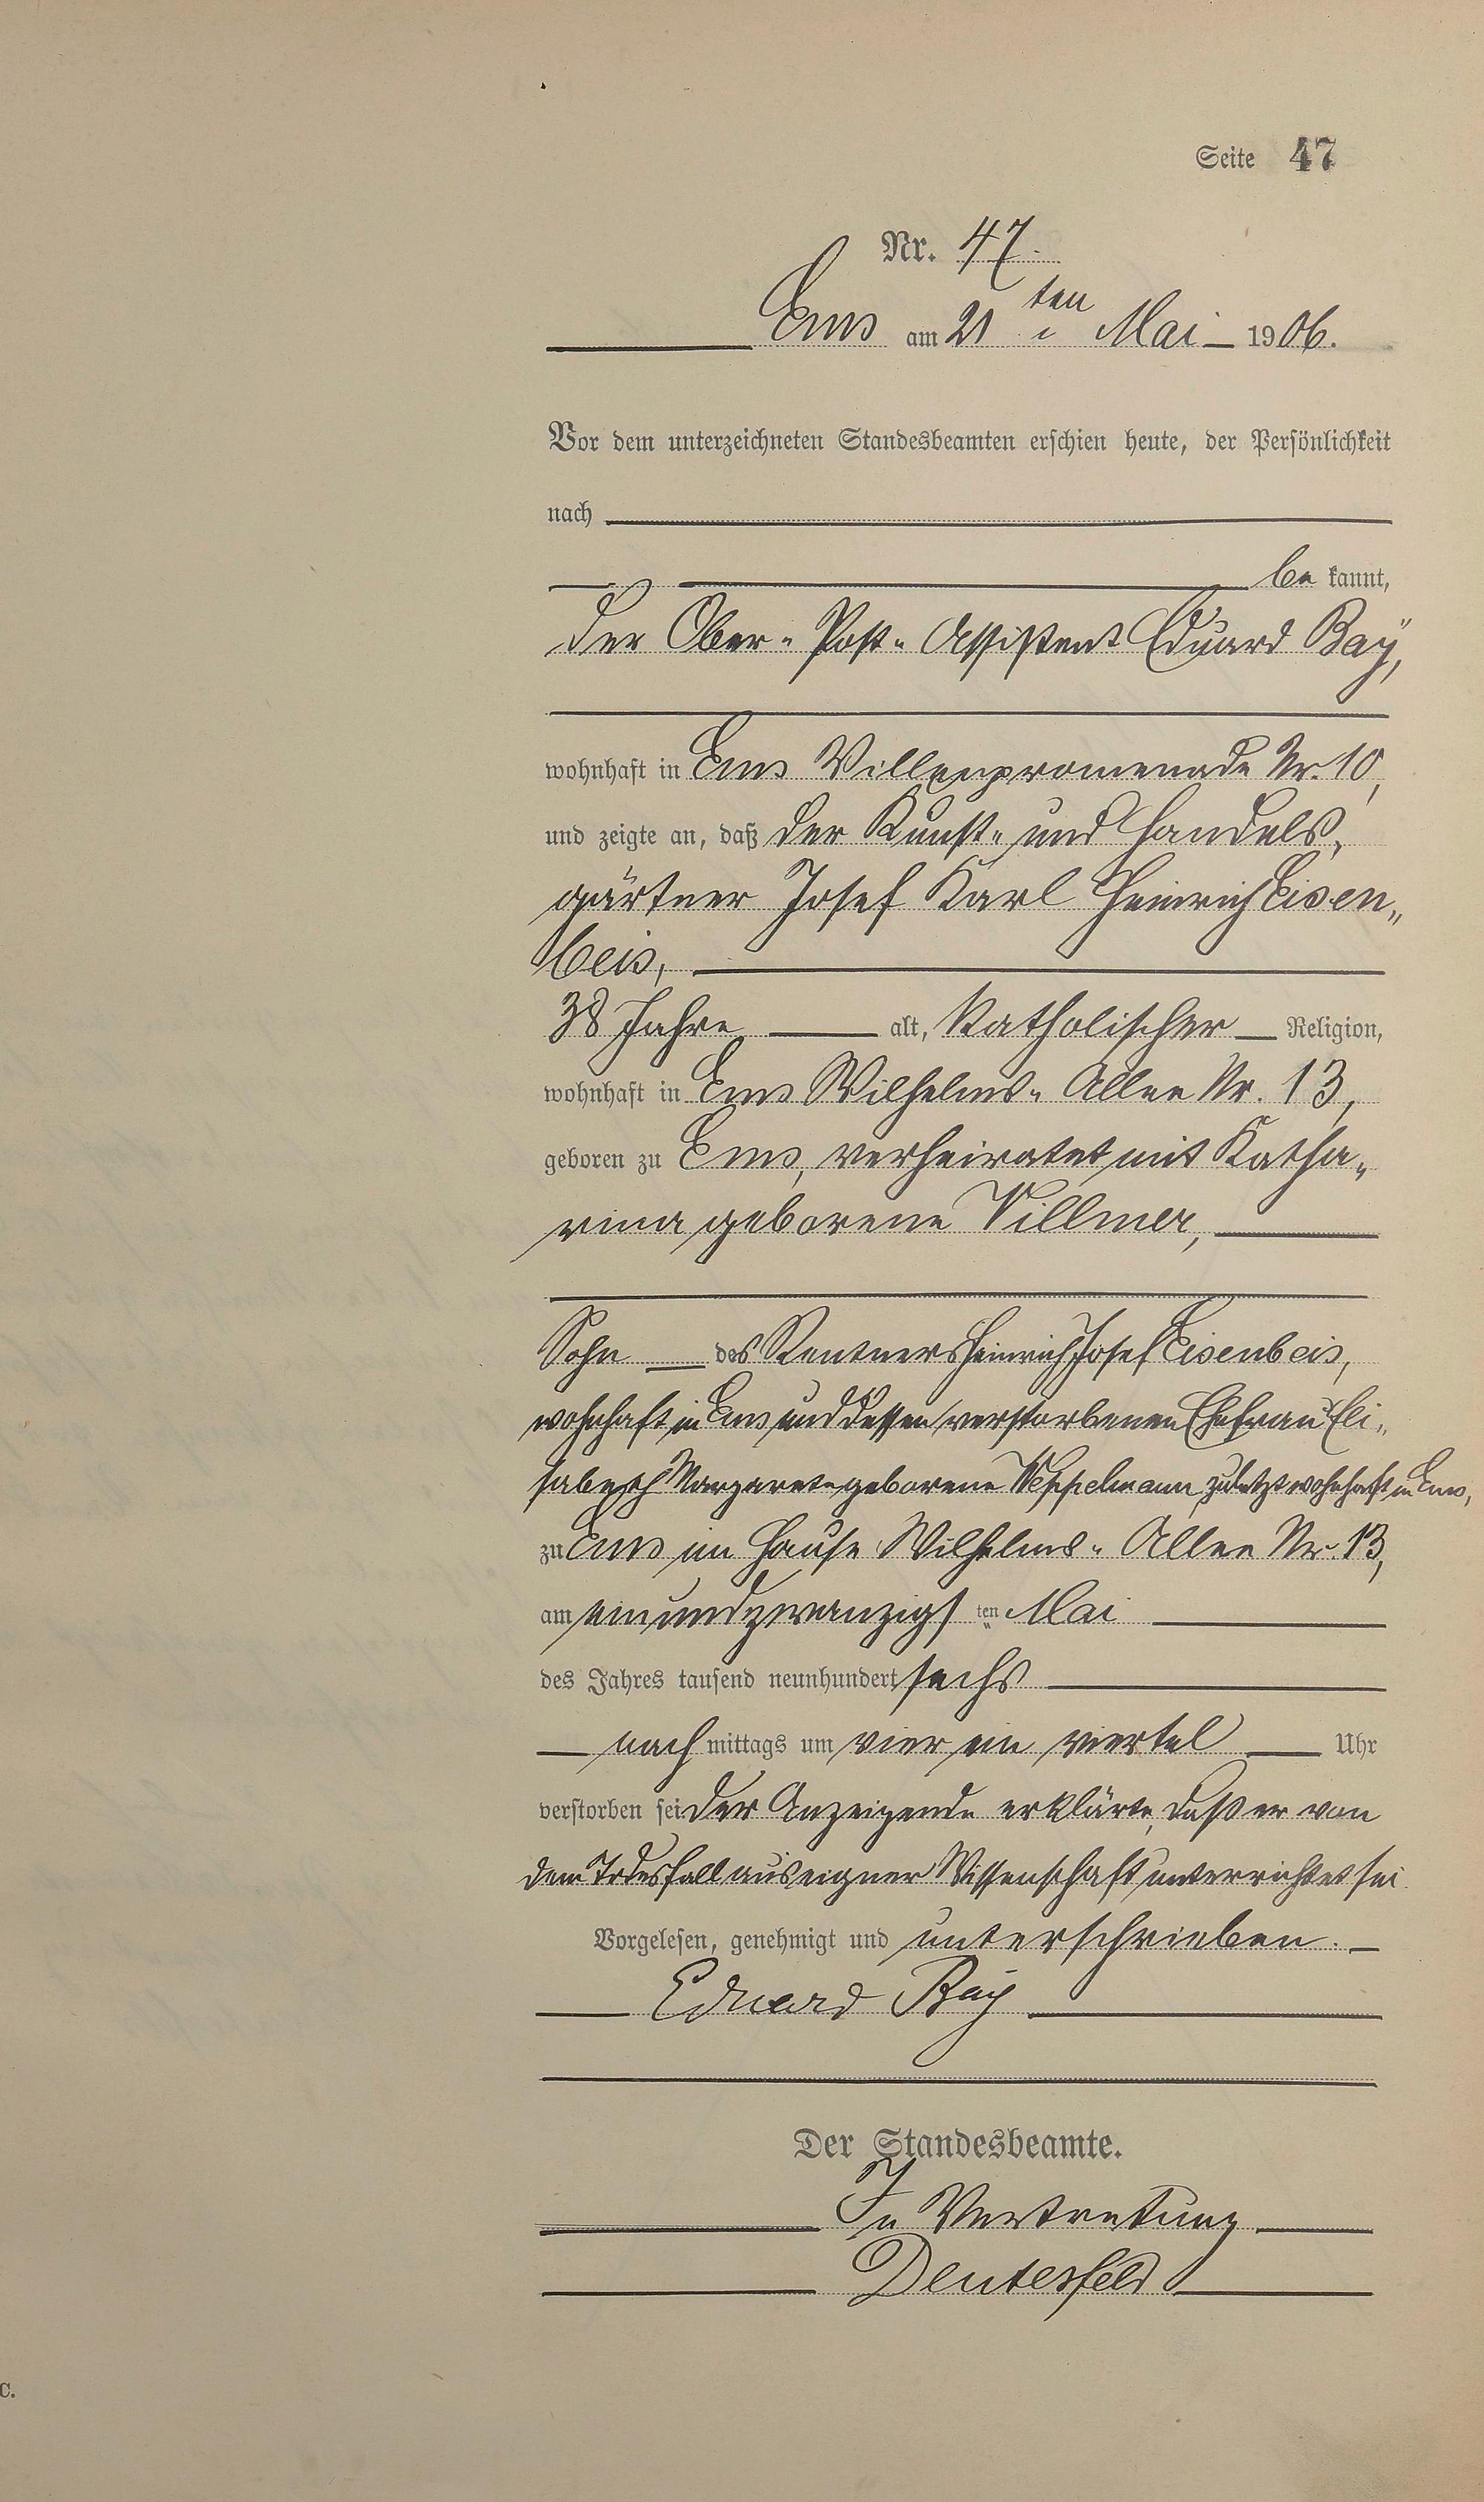 Seite 47
Nr. 47.
Ems am 21ten Mai 1906.
Vor dem unterzeichneten Standesbeamten erschien heute, der Persönlichkeit
nach
bekannt,
der Ober-Post-Assistent Eduard Baÿ,
wohnhaft in Ems Villenpromenade Nr. 10,
und zeigte an, daß der Kunst- und Handels-
gärtner Josef Karl Heinrich Eisen-
beis,
38 Jahre alt, katholischer Religion,
wohnhaft in Ems Wilhelms-Allee Nr. 13,
geboren zu Ems, verheiratet mit Katha-
rina geborene Villmer,
Sohn des Rentners Heinrich Josef Eisenbeis,
wohnhaft in Ems und dessen verstorbenen Ehefrau Eli-
sabeth Margarete geborene zuletzt wohnhaft in Ems,
zu Ems im Hause Wilhelms-Allee Nr. 13,
am einundzwanzigsten Mai
des Jahres tausend neunhundert sechs
nachmittags um vier ein viertel Uhr
verstorben sei. Der Anzeigende erklärte, daß er von
dem Todesfall aus eigner Wissenschaft unterrichtet sei.
Vorgelesen, genehmigt und unterschrieben.
Eduard Baÿ
Der Standesbeamte.
In Vertretung
C.